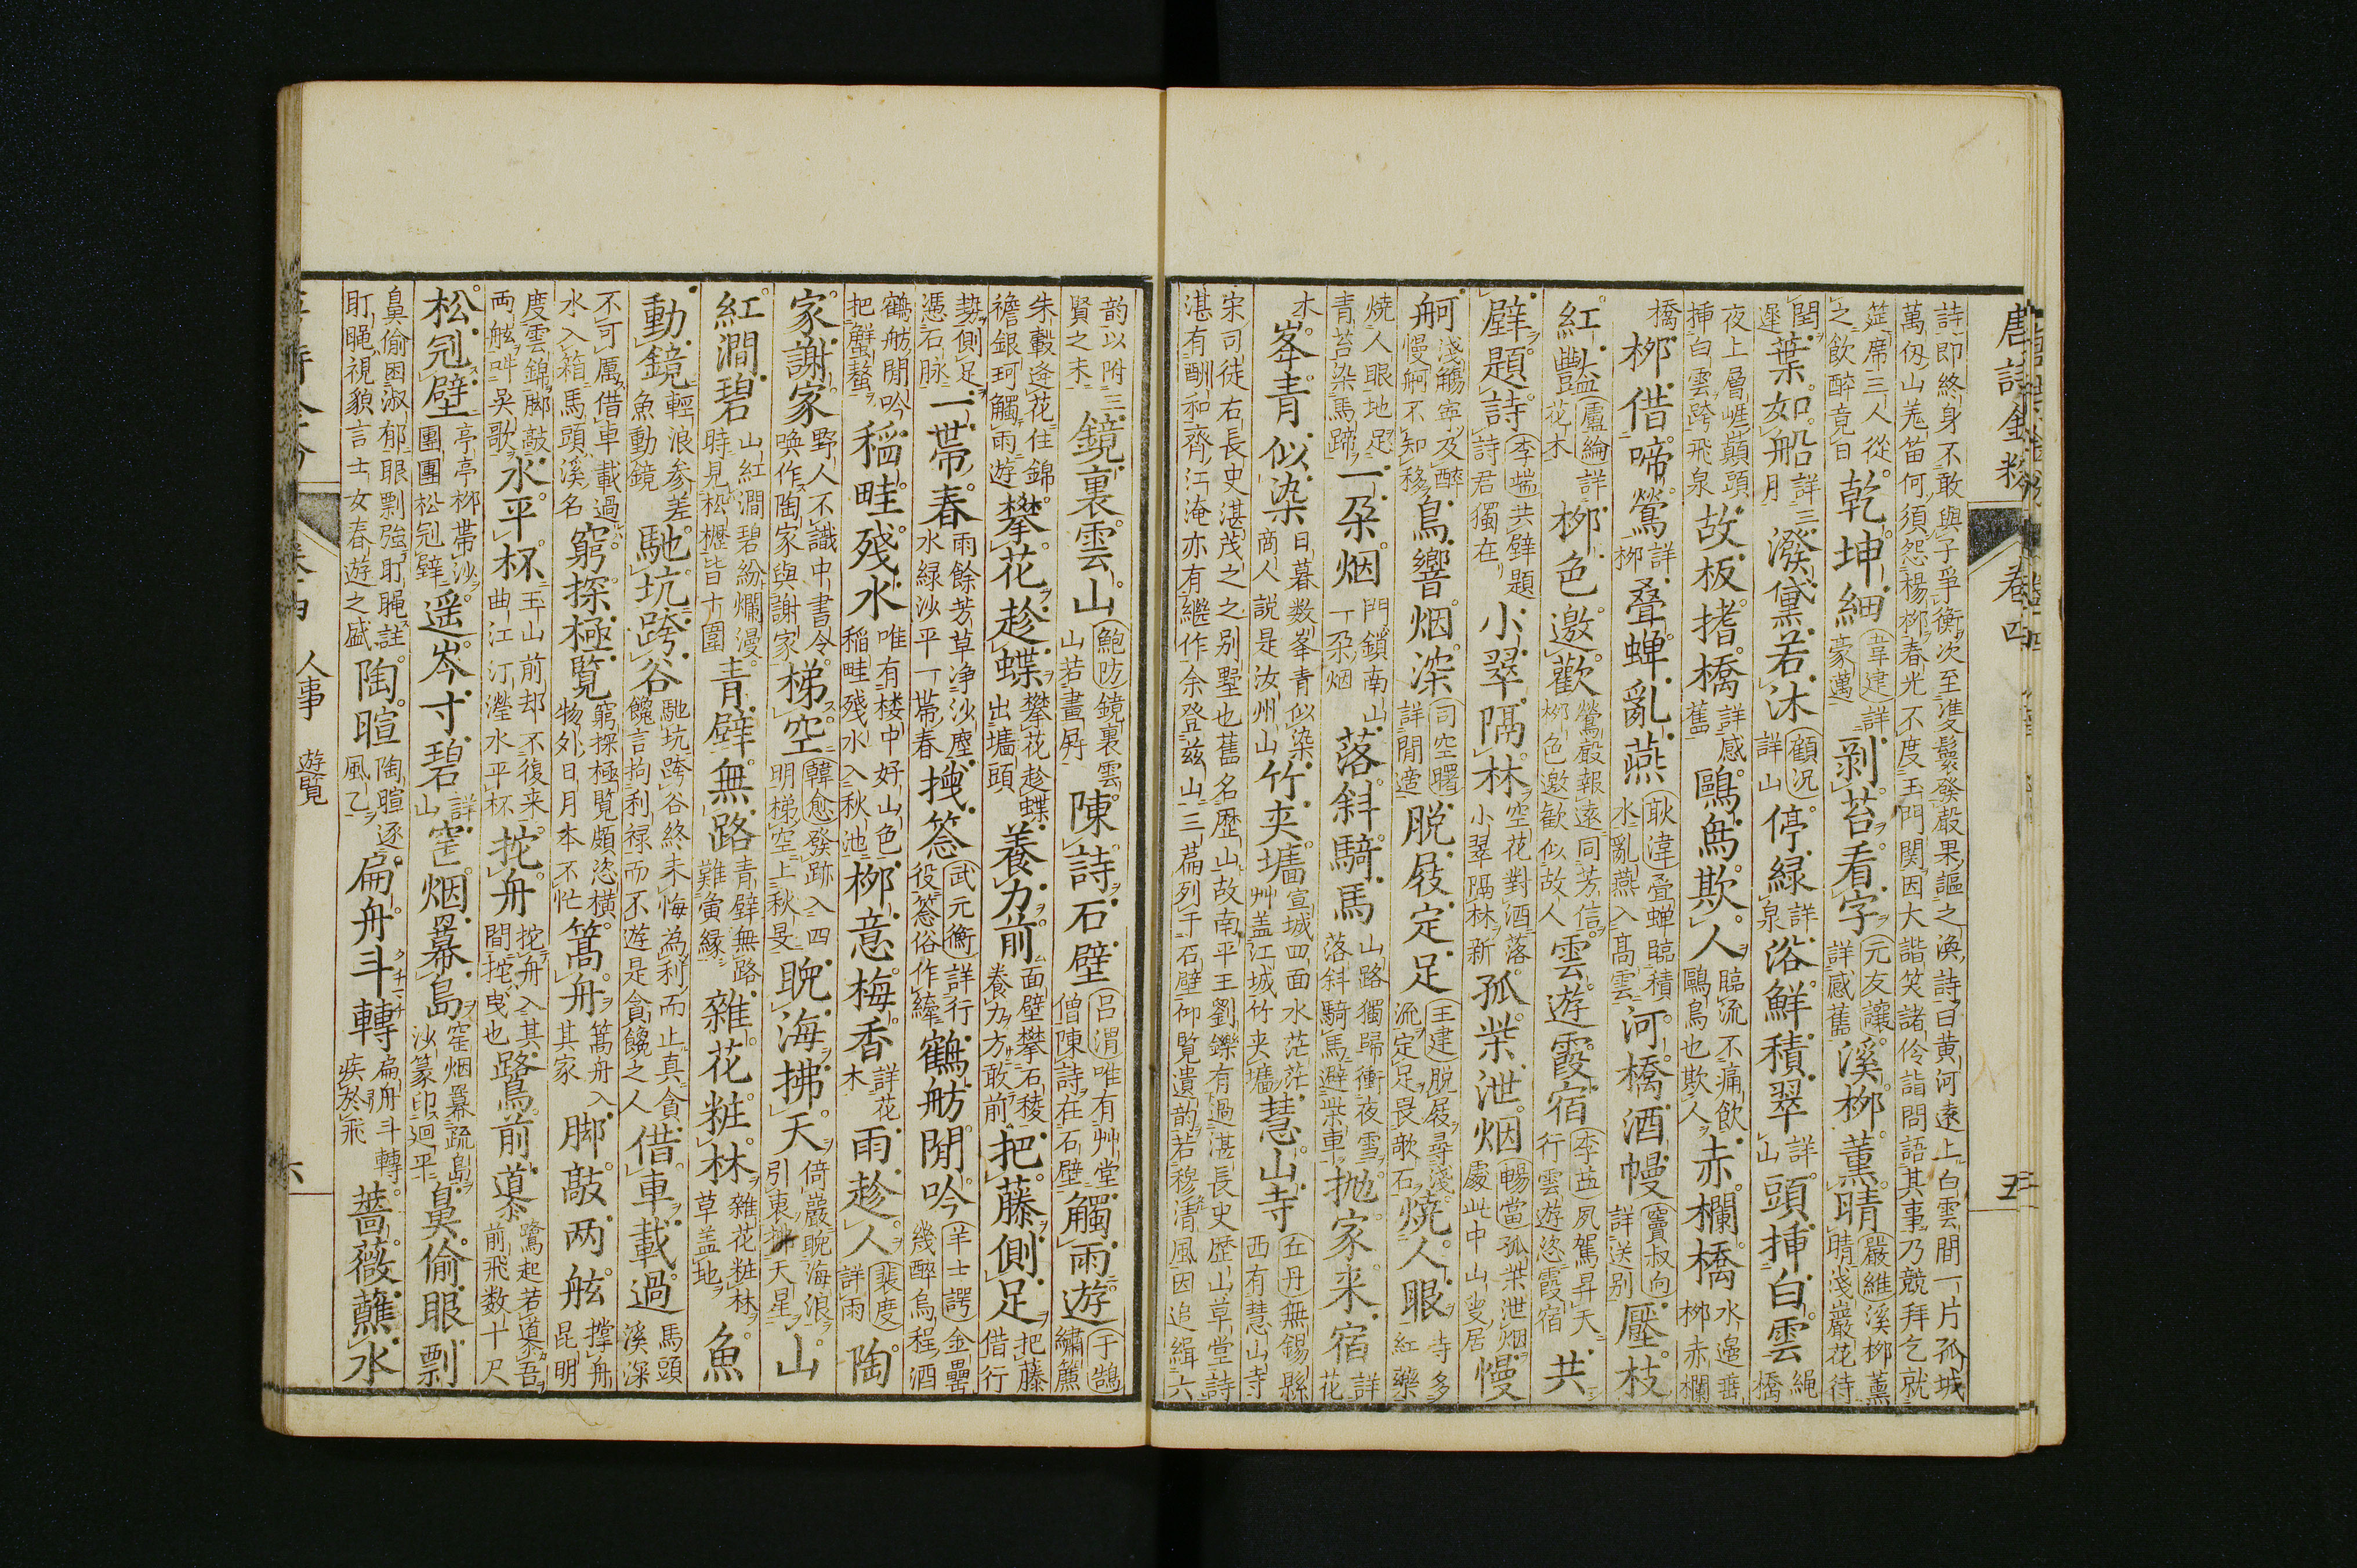 唐詩金粉 卷四 五
詩即終身不敢與子爭衡次至雙鬟發聲果謳之渙詩曰黃河遠上白雲間一片孤城
萬仭山羌笛何須怨楊柳春光不度玉門関因大諧笑諸伶詣問語其事乃競拜乞就
筵席三人從之飲醉竟日 乾坤細 韋建詳豪邁 剥苔看字 元友讓詳感舊 溪柳薰晴 嚴維溪柳薰晴淺巖花待
閏遲 葉如船 詳月 潑黛若沐 顧况詳山 停綠 詳泉 浴鮮積翠 詳山 頭揷白雲 縄橋
夜上層崕顛頭揷白雲跨飛泉 故板揸橋 詳感舊 鷗鳥欺人 臨流不痛飲鷗鳥也欺人 赤欄橋 水邉垂柳赤欄
橋 柳借啼鶯 詳柳 叠蝉亂燕 耿湋叠蝉臨積水亂燕入高雲 河橋酒幔 竇叔向詳送别 壓枝
紅豔 盧綸詳花木 柳色邀歡 鶯聲報遠同芳信柳色邀歡似故人 雲遊霞宿 李益夙駕昇天行雲遊恣霞宿 共
壁題詩 李端共壁題詩君獨在 小翠隔林 空花對酒落小翠隔林新 孤柴泄烟 暢當孤柴泄烟處此中山叟居 慢
舸 淺觴寧及醉慢舸不知移 鳥響烟深 司空曙詳閒適 脱屐定足 王建脱屐尋淺流定足畏欹石 燒人眼 寺多紅藥
燒人眼地足青苔染馬蹄 一朶烟 門鎖南山一朶烟 落斜騎馬 山路獨歸衝夜雪落斜騎馬避柴車 抛家来宿 詳花
木 峯青似染 日暮数峯青似染商人説是汝州山 竹夹墻 宣城四面水茫茫艸盖江城竹夹墻 慧山寺 丘丹無錫縣西有慧山寺
宋司徒右長史湛茂之之别墅也舊名歴山故南平王劉鑠有過湛長史歴山草堂詩
湛有酬和齊江淹亦有繼作余登兹山三萹列于石壁仰覧遺韵若穆清風因追緝六
韵以附三賢之末 鏡裏雲山 鮑防鏡裏雲山若畫屏 陳詩石壁 吕渭唯有艸堂僧陳詩在石壁 觸雨遊 于鵠繡簾
朱轂逢花住錦襜銀珂觸雨遊 攀花趁蝶 攀花趁蝶出墻頭 養力前 面壁攀石稜養力方敢前 把藤側足 把藤借行
勢側足憑石脉 一帯春 雨餘芳草净沙塵水緑沙平一帯春 搜簷 武元衡詳行役簷俗作絳 鶴舫閒吟 羊士諤金罍幾醉烏程酒
鶴舫閒吟把蟹螯 稲畦殘水 唯有楼中好山色稲畦殘水入秋池 柳意梅香 詳花木 雨趁人 裴度詳雨 陶
家謝家 野人不識中書令喚作陶家與謝家 梯空 韓愈發跡入四明梯空上秋旻 睨海拂天 倚巖睨海浪引袖拂天星 山
紅澗碧 山紅澗碧紛爛漫時見松櫪皆十圍 青壁無路 青壁無路難夤縁 雜花粧林 雜花粧林草盖地 魚
動鏡 輕浪参差魚動鏡 馳坑跨谷 馳坑跨谷終未悔為利而止真貪饞言拘利禄而不遊是貪饞之人 借車載過 馬頭溪深
不可厲借車載過水入箱馬頭溪名 窮探極覧 窮探極覧頗恣横物外日月本不忙 篙舟 篙舟入其家 脚敲两舷 撑舟昆明
度雲錦脚敲两舷叫吴歌 水平杯 玉山前却不復来曲江汀瀅水平杯 拕舟 拕舟入其間拕曳也 鷺前導 鷺起若導吾前飛数十尺
松冠壁 亭亭柳帯沙團團松冠壁 遥岑寸碧 詳山 窑烟羃島 窑烟羃疏島沙篆印迴平 鼻偷眼剽
鼻偷困淑郁眼剽強盯䁅註盯䁅視貌言士女春遊之盛 陶暄 陶暄逐風乙 扁舟斗轉 扁舟斗轉疾於飛 薔薇蘸水
人事 遊覧 六